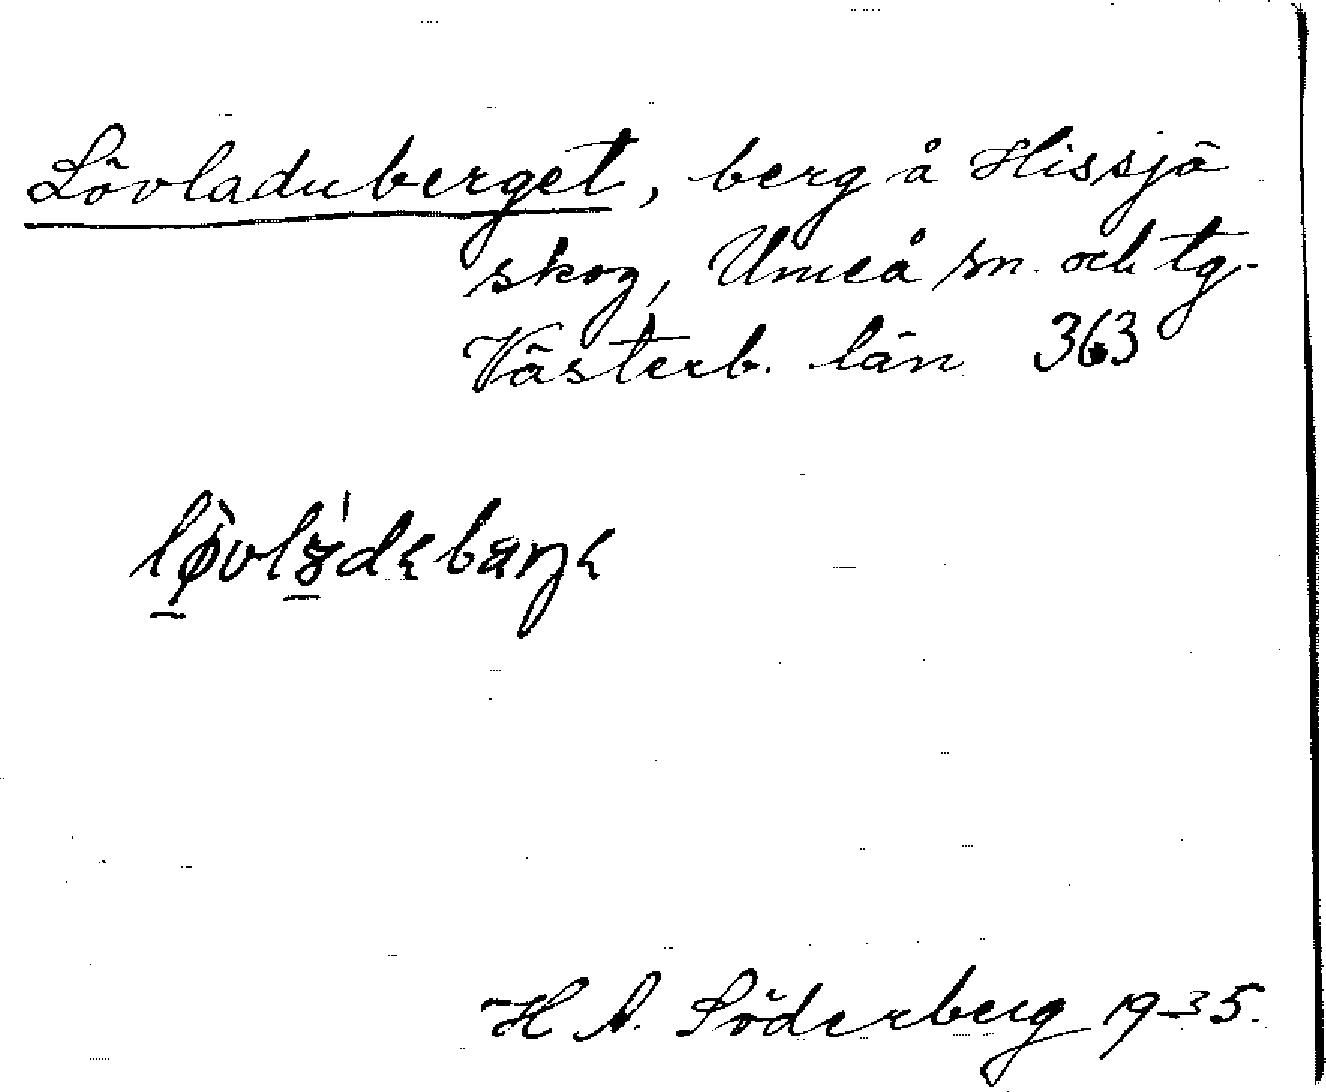 Lövladuberget, berg å Hissjö
skog, Umeå sn. och tg.
Västerb. län 363
H A. Söderberg 1935.